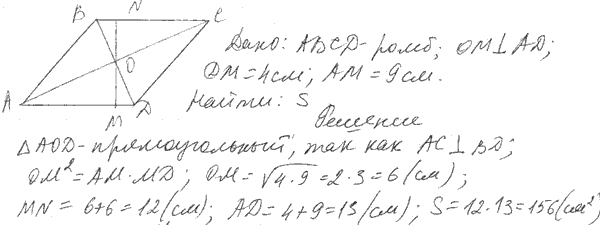 B N C
Дано: ABCD-ромб; OM⊥AD;
O
DM=4см; AM=9см.
A M D
Найти: S
Решение
△AOD-прямоугольный, так как AC⊥BD;
OM²=AM·MD; OM=√4·9=2·3=6(см);
MN=6+6=12(см); AD=4+9=13(см); S=12·13=156(см²)